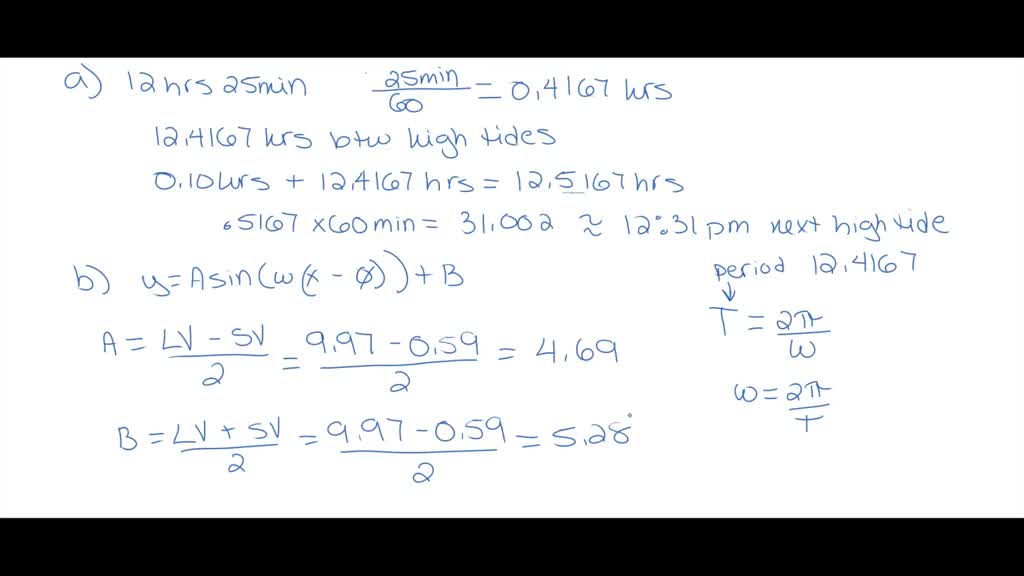 a) 12 hrs 25min 25min/60 = 0.4167 hrs
12.4167 hrs btw high tides
0.10 hrs + 12.4167 hrs = 12.5167 hrs
.5167 x 60 min = 31.002 ≈ 12:31 pm next high tide
b) y = A sin(ω(x - φ)) + B
period 12.4167
↓
T = 2π/ω
A = LV - SV/2 = 9.97 - 0.59/2 = 4.69
ω = 2π/T
B = LV + SV/2 = 9.97 - 0.59/2 = 5.28